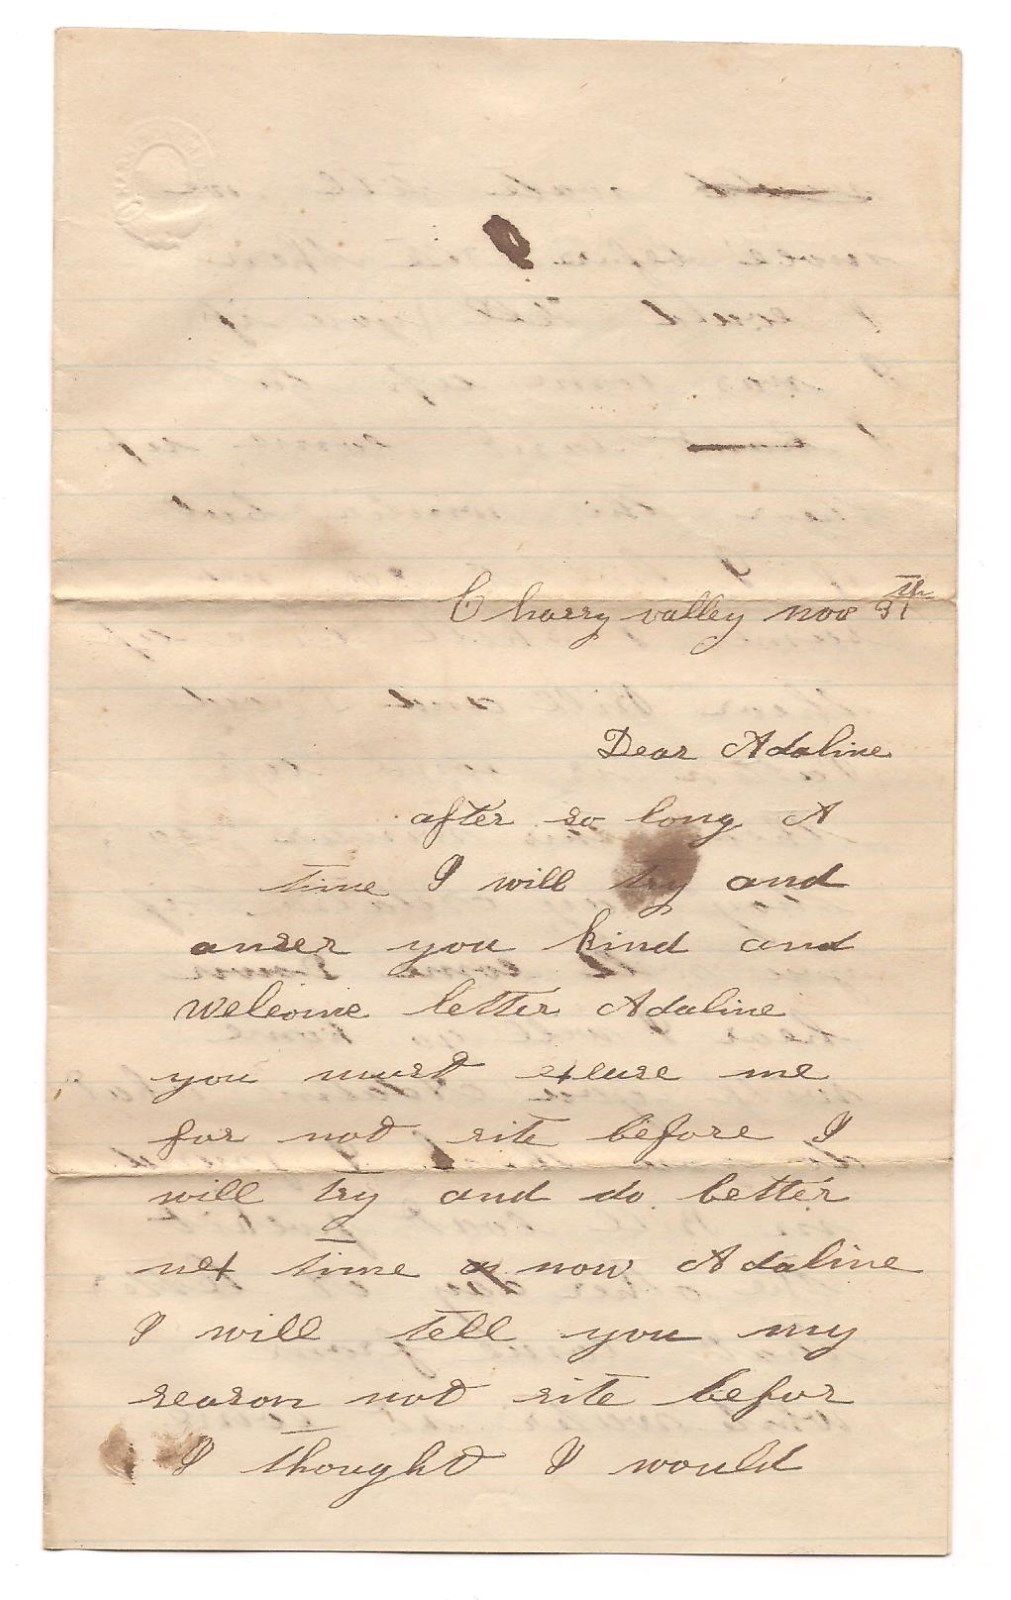 Charry valley nov 31th
Dear Adaline
after so long A
time I will try and
anser you kind and
welcome letter Adaline
you must excuse me
for not rite before I
will try and do better
next time now Adaline
I will tell you my
reason not rite befor
I thought I would